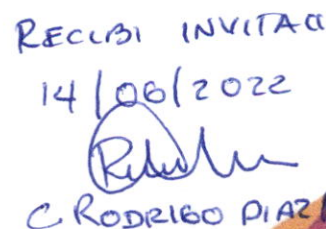 RECIBI INVITACI
14/06/2022
C RODRIGO DIAZ